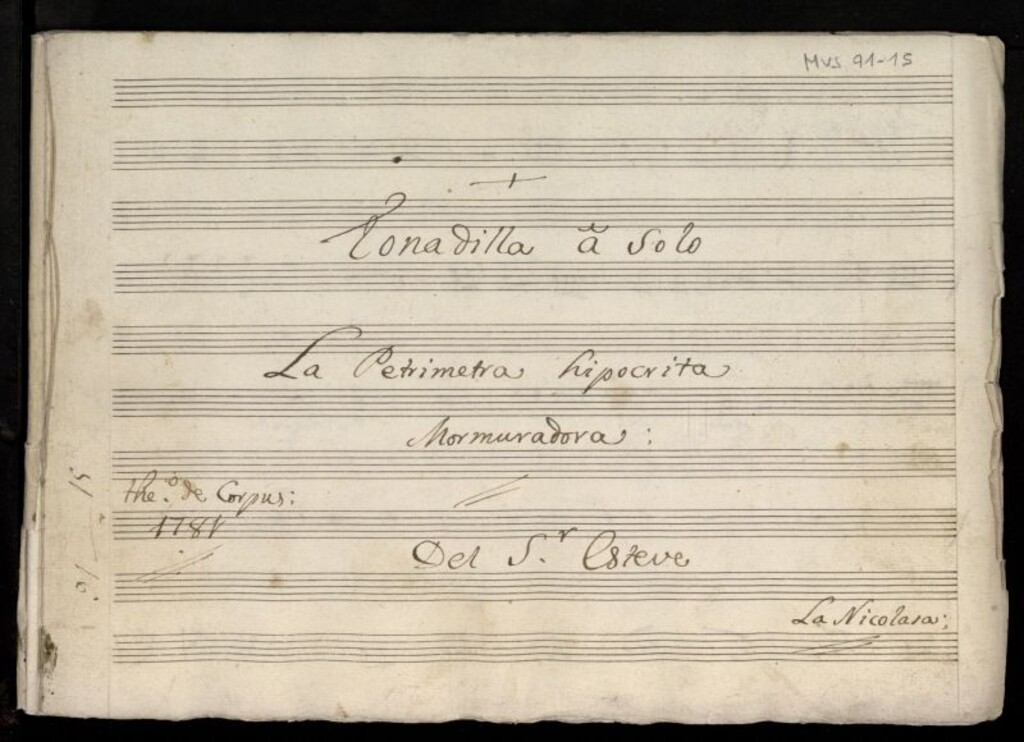 MUS 91-15
Tonadilla à Solo
La Petrimetra hipocrita
Mormuradora:
the.º de Corpus:
1781
Del S.r Esteve
La Nicolasa: